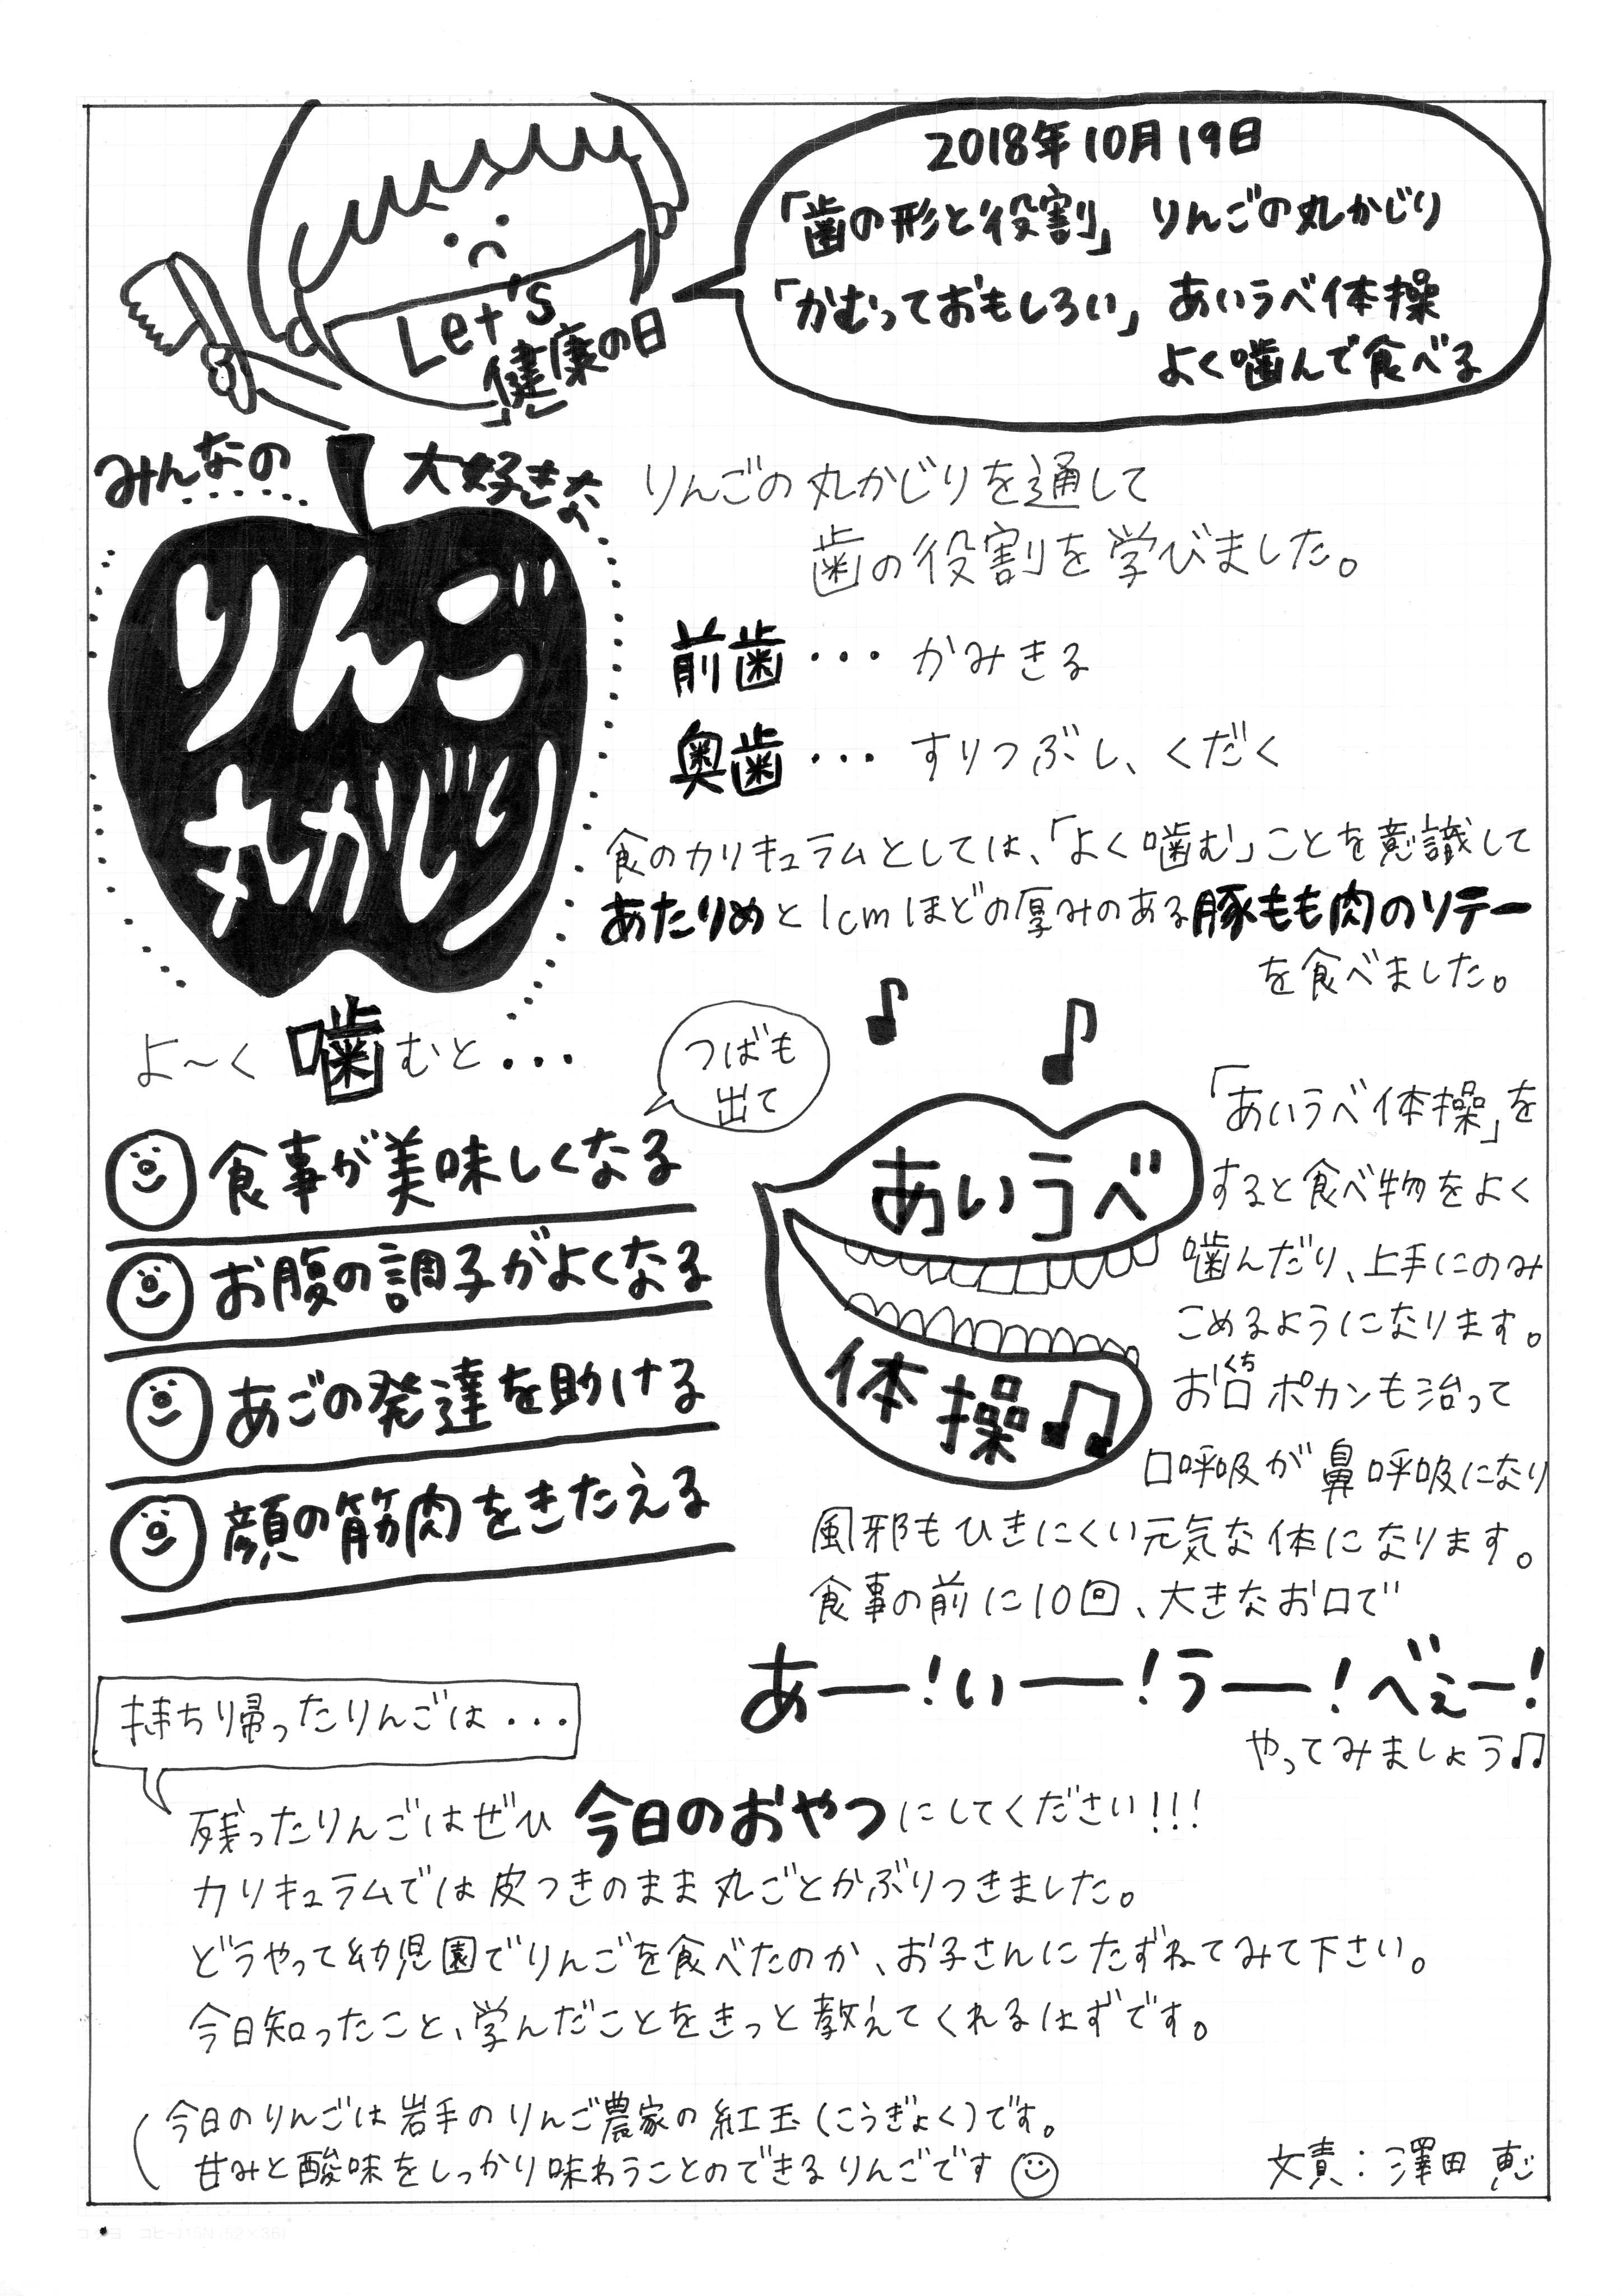 Let's
健康の日
2018年10月19日
「歯の形と役割」 りんごの丸かじり
「かむっておもしろい」 あいうべ体操
よく噛んで食べる
みんなの 大好きな
りんご
丸かじり
りんごの丸かじりを通して
歯の役割を学びました。
前歯・・・かみきる
奥歯・・・すりつぶし、くだく
食のカリキュラムとしては、「よく噛む」ことを意識して
あたりめと1cmほどの厚みのある豚もも肉のソテー
を食べました。
よ～く噛むと・・・
つばも
出て
食事が美味しくなる
お腹の調子がよくなる
あごの発達を助ける
顔の筋肉をきたえる
あいうべ
体操♫
「あいうべ体操」を
すると食べ物をよく
噛んだり、上手にのみ
こめるようになります。
お口(くち)ポカンも治って
口呼吸が鼻呼吸になり
風邪もひきにくい元気な体になります。
食事の前に10回、大きなお口で
あー!いー!うー!べぇー!
やってみましょう♫
持ち帰ったりんごは・・・
残ったりんごはぜひ今日のおやつにしてください!!!
カリキュラムでは皮つきのまま丸ごとかぶりつきました。
どうやって幼児園でりんごを食べたのか、お子さんにたずねてみて下さい。
今日知ったこと、学んだことをきっと教えてくれるはずです。
(今日のりんごは岩手のりんご農家の紅玉(こうぎょく)です。
甘みと酸味をしっかり味わうことのできるりんごです
文責：澤田 恵